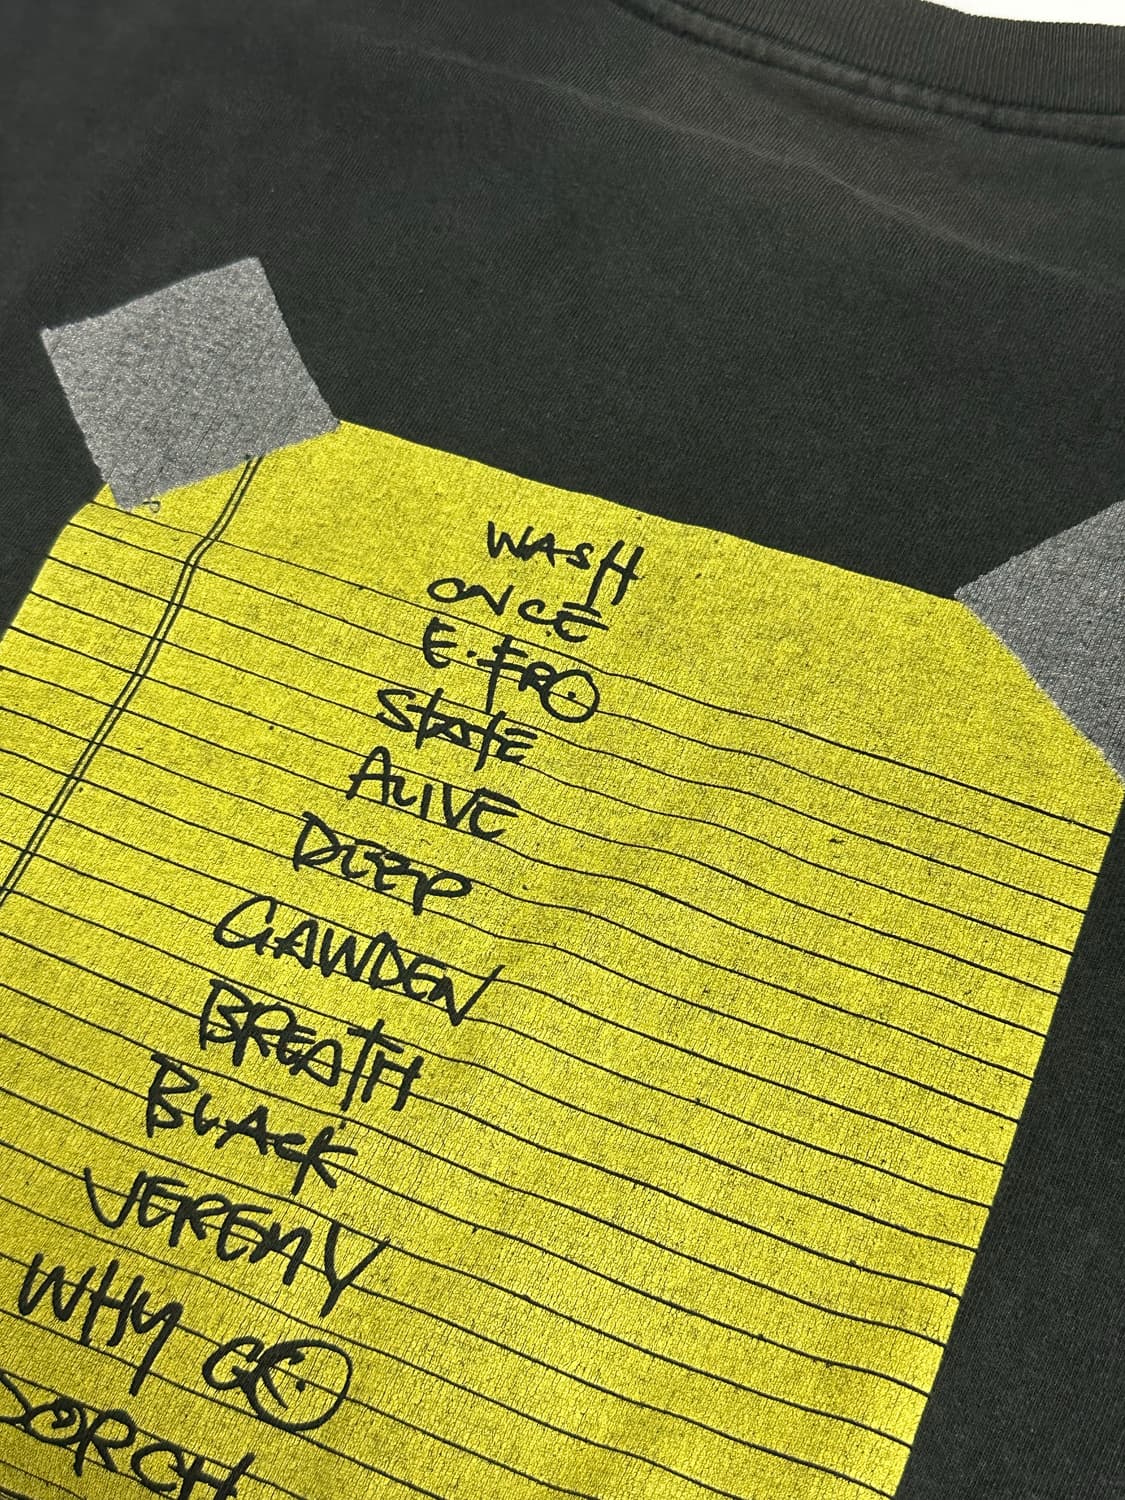 WASH
ONCE
E.FRO
STATE
ALIVE
DEEP
GAWDEN
BREATH
BLACK
JEREMY
WHY GO
PORCH